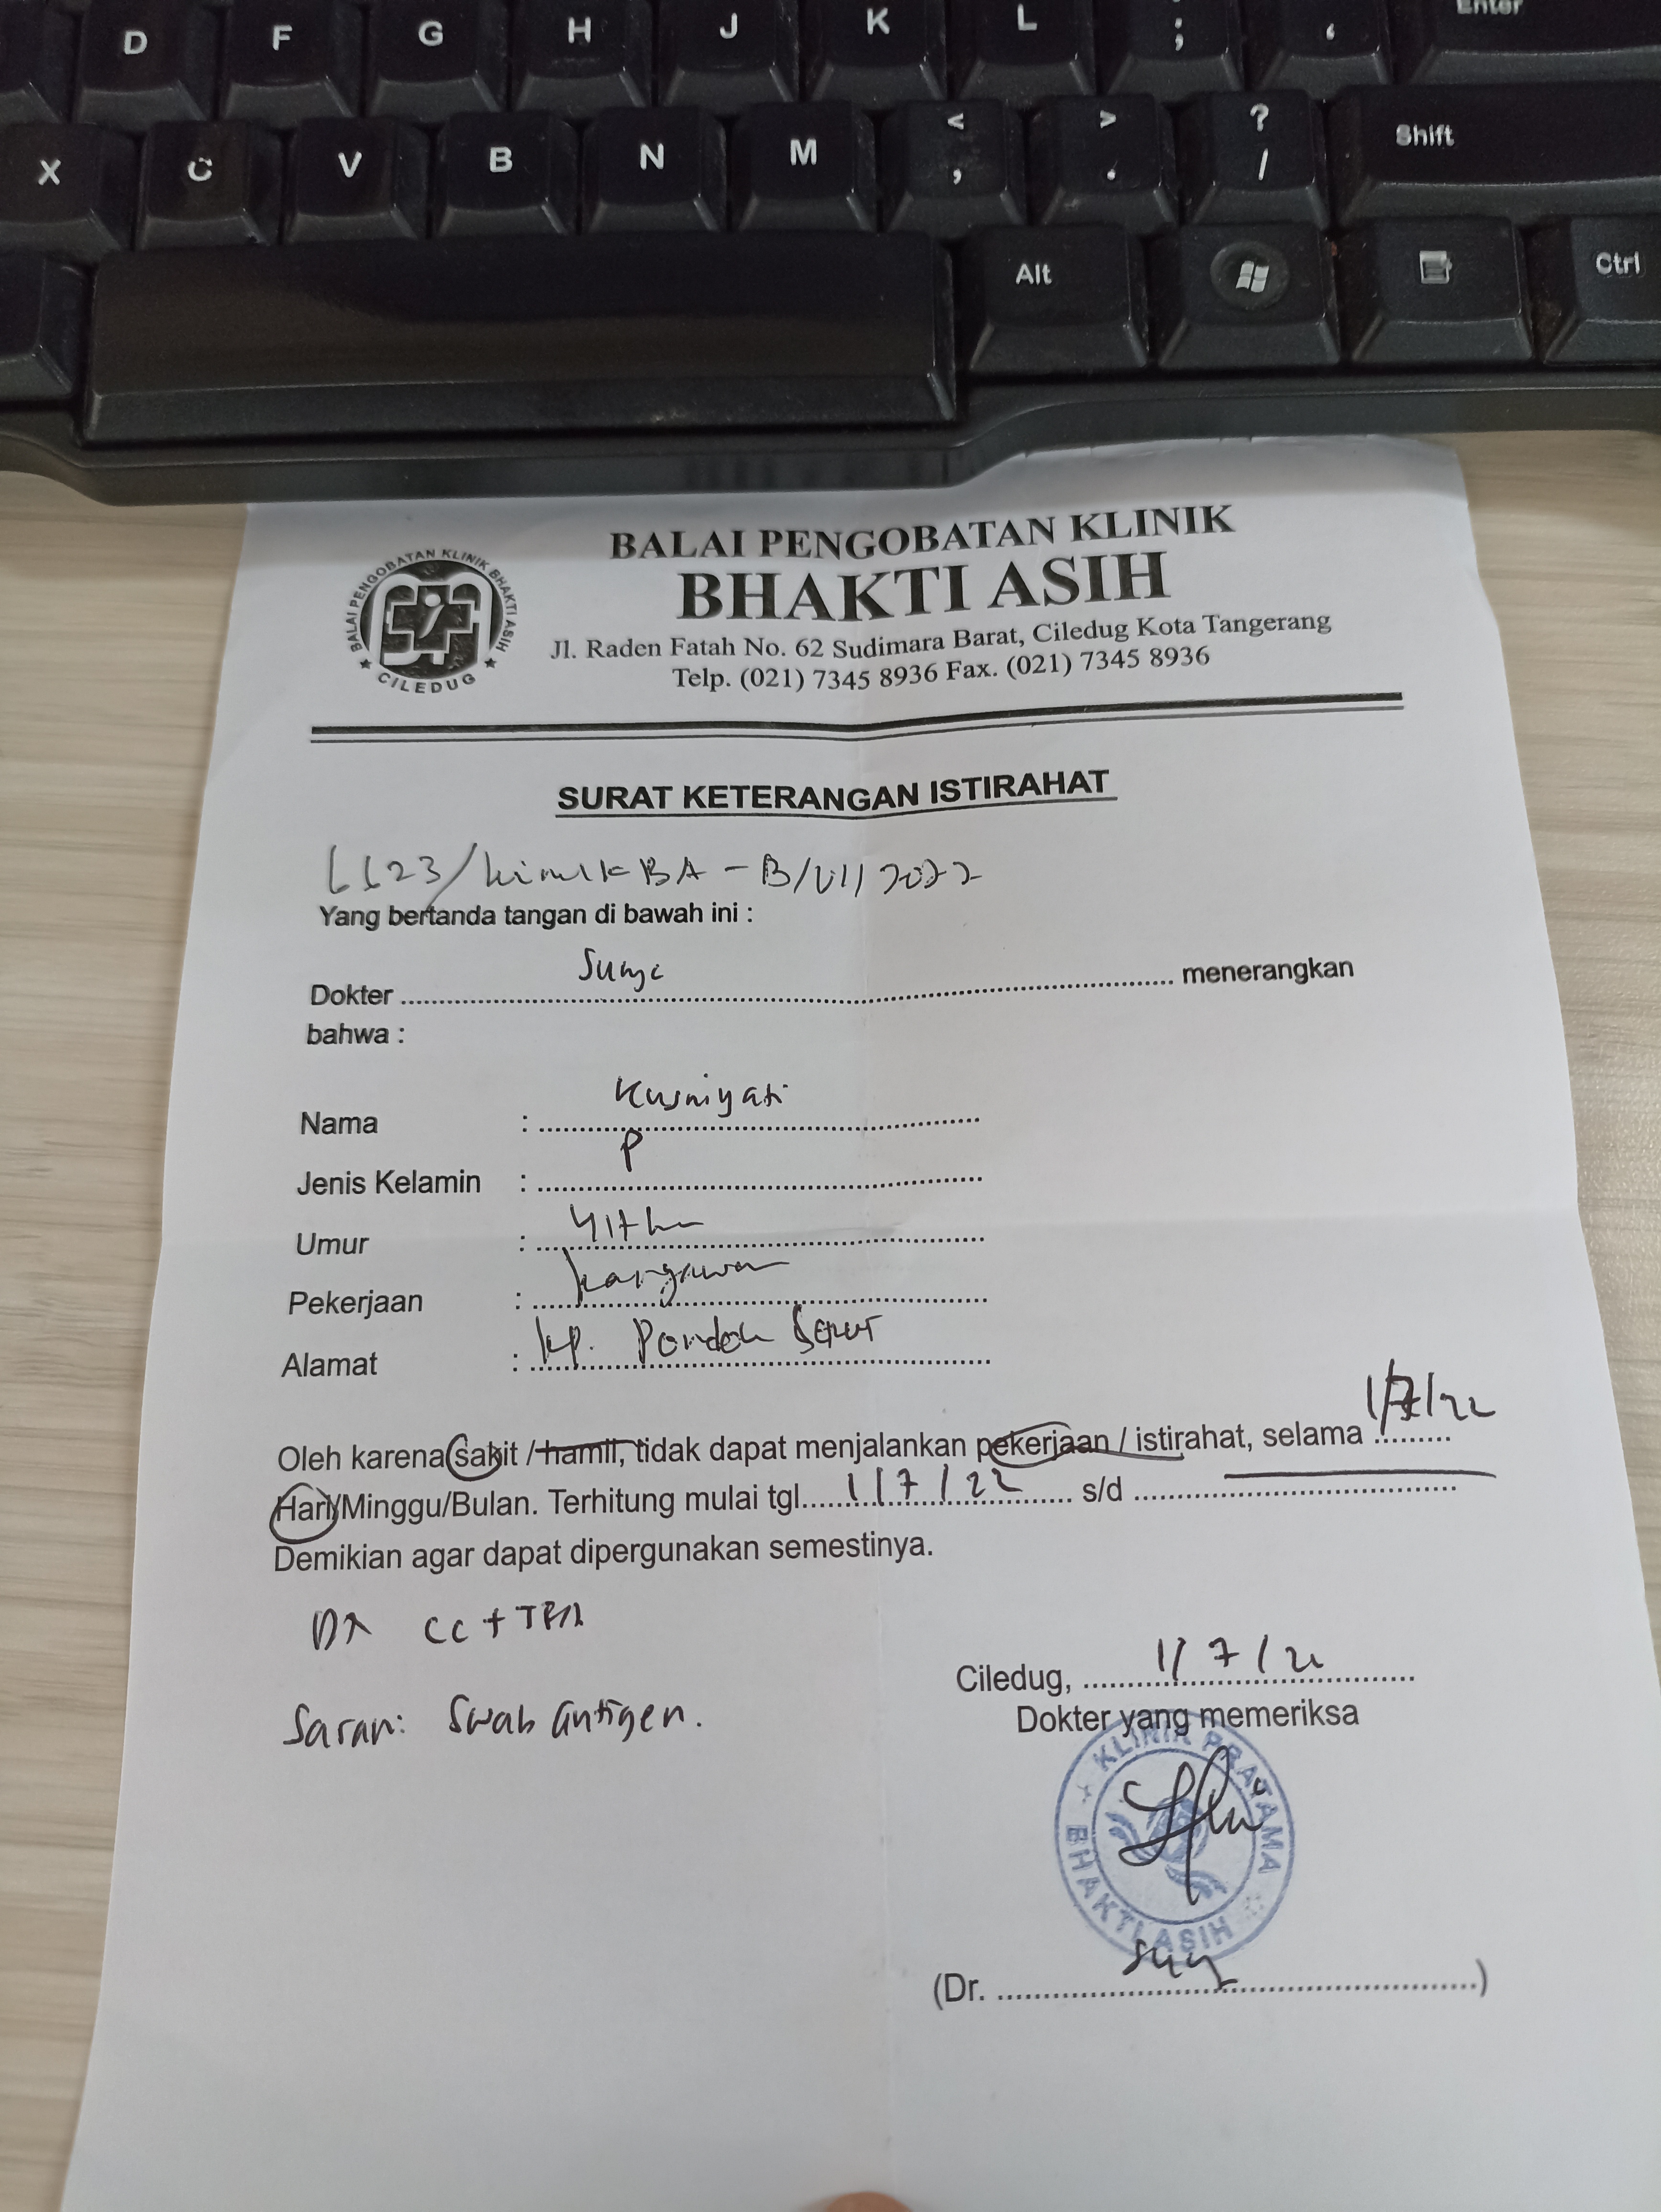 D F G H J K L ; ‘ Enter
X C V B N M < , > . ? / Shift
Alt Ctrl
BALAI PENGOBATAN KLINIK BHAKTI ASIH
CILEDUG
BALAI PENGOBATAN KLINIK
BHAKTI ASIH
Jl. Raden Fatah No. 62 Sudimara Barat, Ciledug Kota Tangerang
Telp. (021) 7345 8936 Fax. (021) 7345 8936
SURAT KETERANGAN ISTIRAHAT
6623/klinik BA - B/VII/2022
Yang bertanda tangan di bawah ini :
Dokter .......... menerangkan
bahwa :
Nama : Kusniyati
Jenis Kelamin : P
Umur : 41 th
Pekerjaan : karyawan
Alamat : kp. Pondok
Oleh karena sakit / hamil, tidak dapat menjalankan pekerjaan / istirahat, selama 1/7/22
Hari/Minggu/Bulan. Terhitung mulai tgl. 1/7/22 s/d ..........
Demikian agar dapat dipergunakan semestinya.
DX CC +
Saran: Swab antigen.
Ciledug, 1/7/22
Dokter yang memeriksa
KLINIK PRATAMA
BHAKTI ASIH
(Dr. ..........)